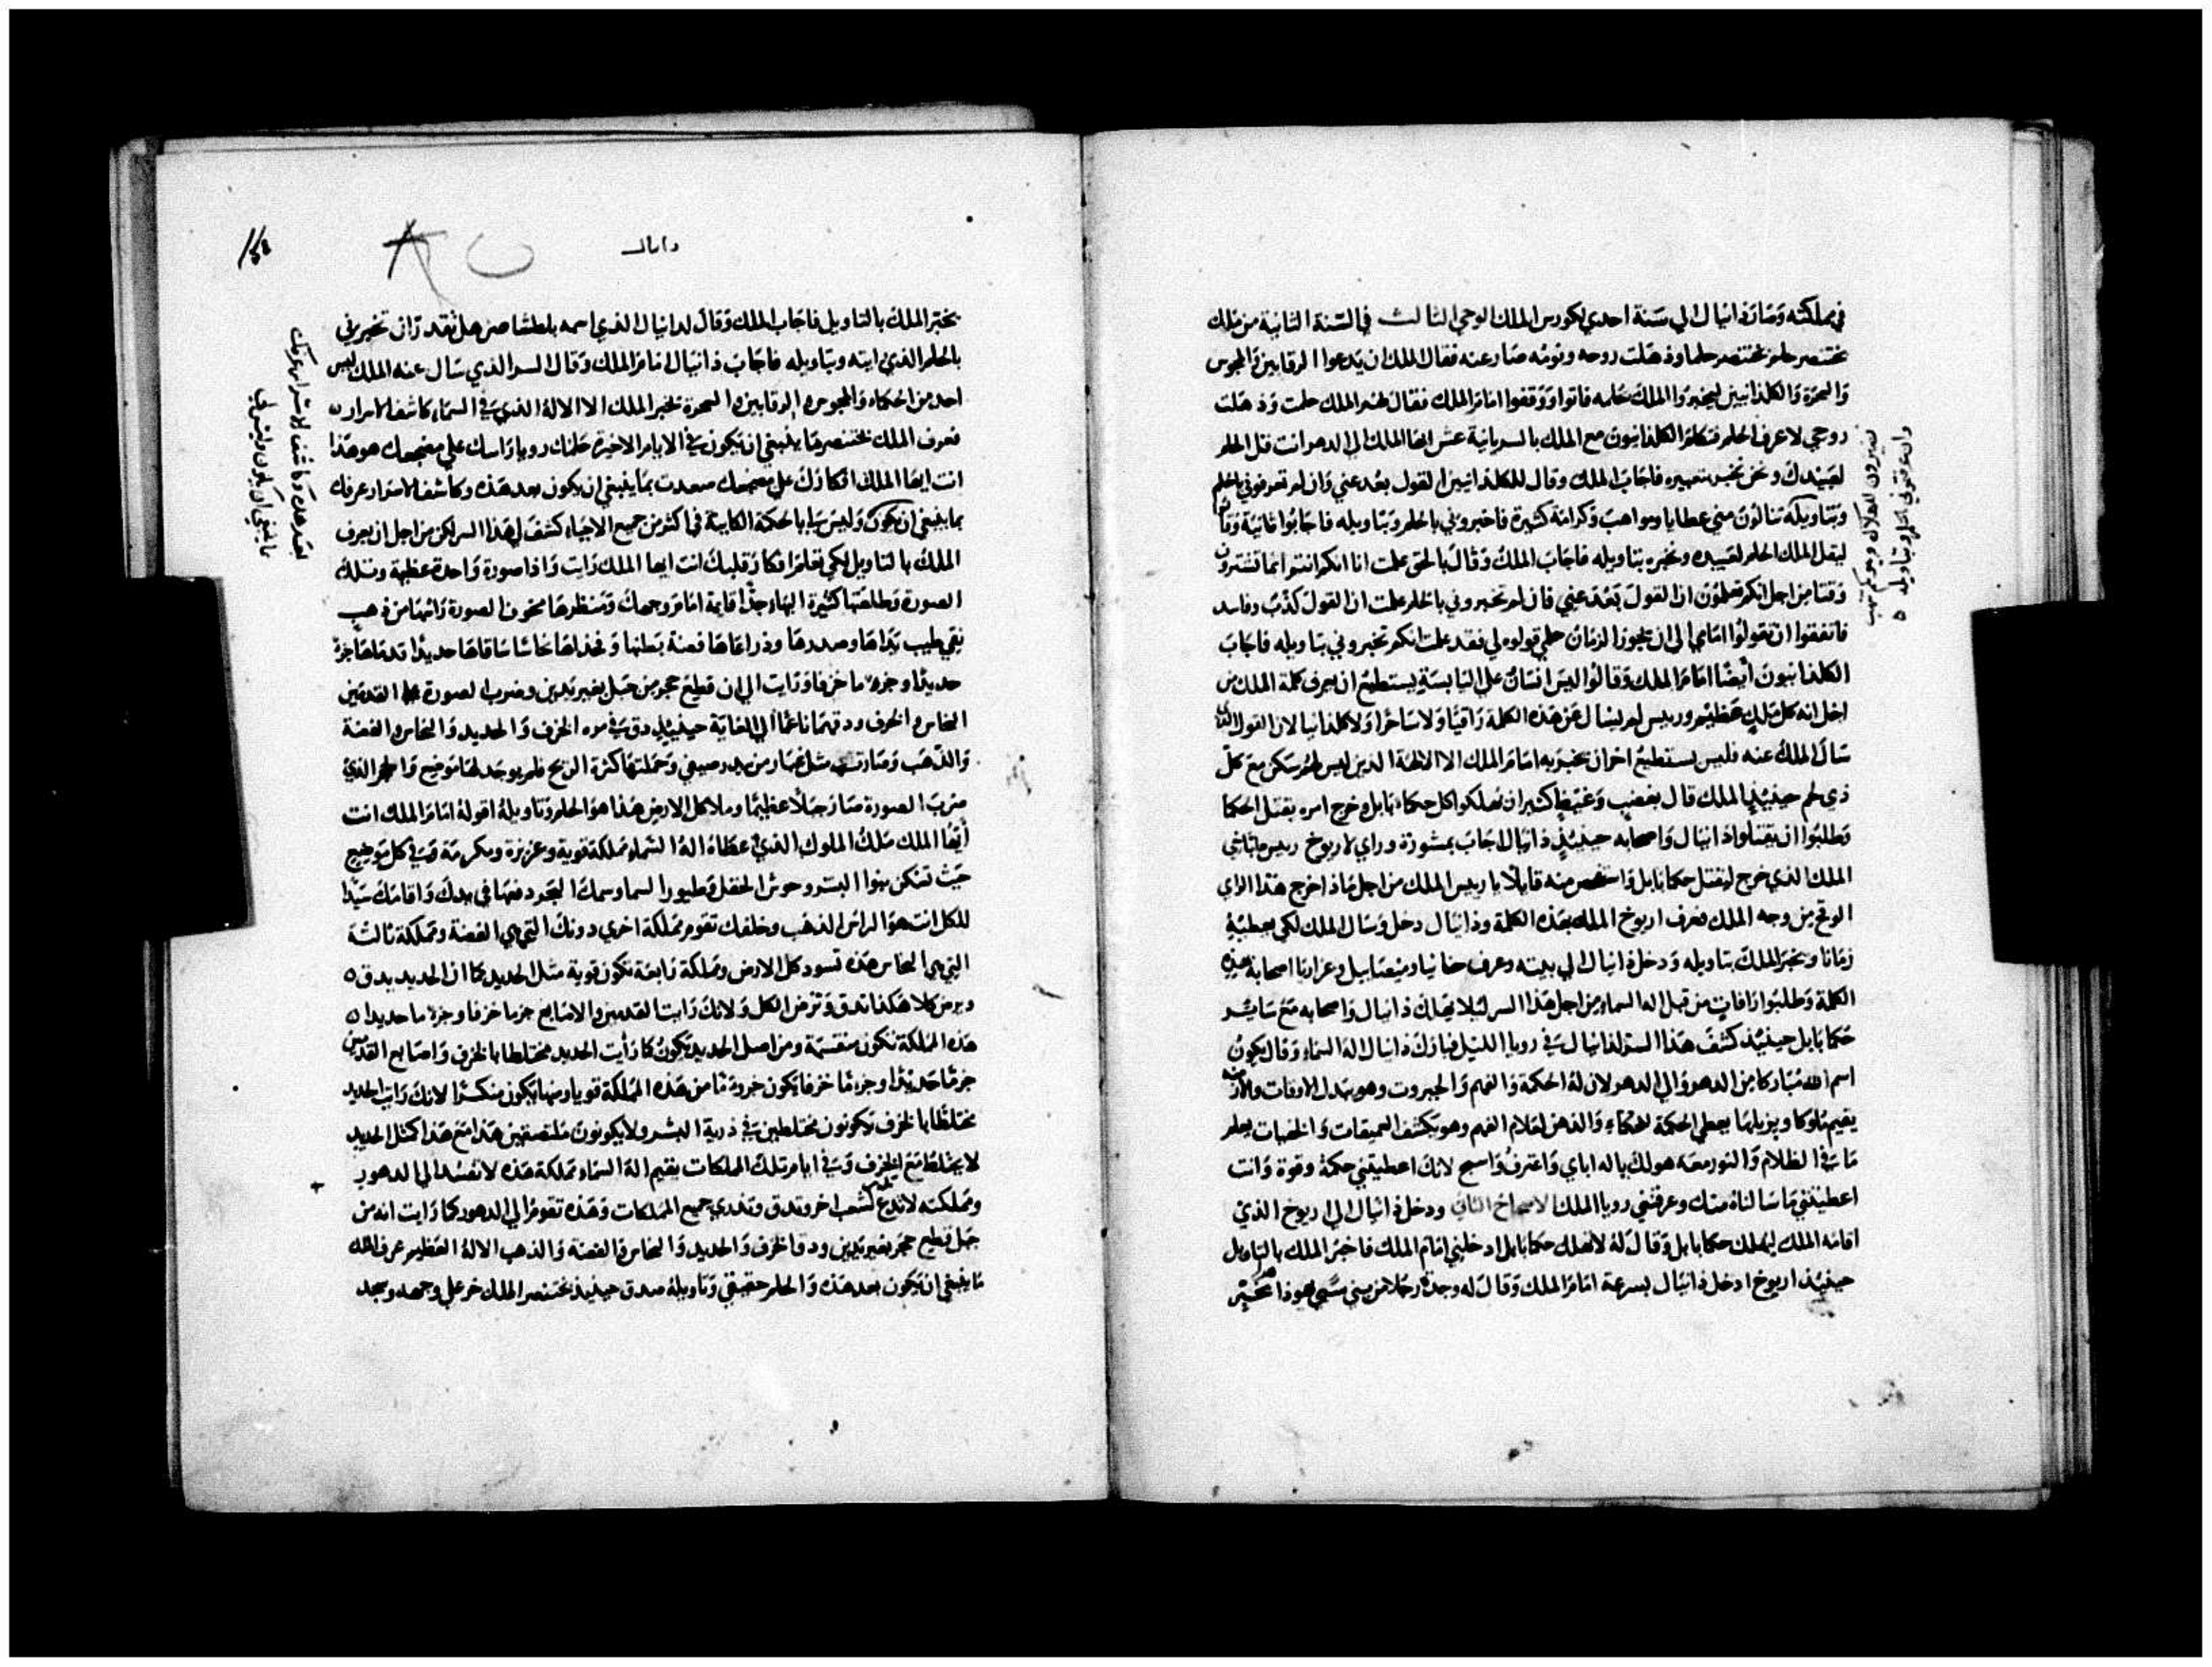 في مملكته وصار دانيال الي سنة احدي لكورس الملك الوحي الثالث في السنة الثانية من ملك
بختنصر حلم بختنصر حلما وذهلت روحه ونومه صار عنه فقال الملك ان يدعوا الرقايين والمجوس
والسحرة والكلدانيين ليخبروا الملك حلمه فاتوا ووقفوا امام الملك فقال لهم الملك حلمت وذهلت
روحي لاعرف الحلم فتكلم الكلدانيون مع الملك بالسريانية عش ايها الملك الي الدهر انت قل الحلم
لعبيدك ونحن نخبر بتعبيره فاجاب الملك وقال للكلدانيين القول بعد عني وان لم تعرفوني بالحلم
وبتاويله تنالون مني عطايا ومواهب وكرامة كثيرة فاخبروني بالحلم وبتاويله فاجابوا ثانية وقالوا
ليقل الملك الحلم لعبيده ونخبره بتاويله فاجاب الملك وقال بالحق علمت انا انكم انتم انما تشترون
وقتا من اجل انكم تعلمون ان القول بعد عني فان لم تخبروني بالحلم علمت ان القول كذب وفاسد
فاتفقوا ان تقولوا امامي الي ان يجوز الزمان حلمي قولوه لي فقد علمت انكم تخبروني بتاويله فاجاب
الكلدانيون ايضا امام الملك وقالوا ليس انسان علي اليابسة يستطيع ان يعرف كلمة الملك من
اجل انه كل ملك عظيم وريس لم يسال عن هذه الكلمة راقيا ولا ساحرا ولا كلدانيا لان القول الذي
سال الملك عنه فليس يستطيع اخر ان يخبر به امام الملك الا الالهة الذين ليس لهم سكن مع كل
ذي لحم حينيذ الملك قال بغضب وغيظ كثير ان يهلكوا كل حكماء بابل وخرج امره بقتل الحكما
وطلبوا ان يقتلوا دانيال واصحابه حينيذ دانيال اجاب بمشورة وراي لاريوخ ريس طباخي
الملك الذي خرج ليقتل حكما بابل واستفحص منه قايلا يا ريس الملك من اجل ماذا خرج هذا الراي
الوقح من وجه الملك فعرف اريوخ الملك بهذه الكلمة ودانيال دخل وسال الملك لكي يعطيه
زمانا ويخبر الملك بتاويله ودخل دانيال الي بيته وعرف حنانيا وميصاييل وعزاريا اصحابه هذه
الكلمة وطلبوا رافات من قبل اله السماء من اجل هذا السر ليلا يهلك دانيال واصحابه مع ساير
حكما بابل حينيذ كشف هذا السر لدانيال في رويا الليل فبارك دانيال اله السماء وقال يكون
اسم الله مباركا من الدهر والي الدهر لان له الحكمة والفهم والجبروت وهو يبدل الاوقات والازمنة
يقيم ملوكا ويزيلها يعطي الحكمة للحكماء والذهن لعلام الفهم وهو يكشف العميقات والخفيات يعلم
ما في الظلام والنور معه هو لك يا اله اباي واعترف واسبح لانك اعطيتني حكمة وقوة وانت
اعطيتني ما سالناه منك وعرفتني رويا الملك الاصحاح الثاني ودخل دانيال الي اريوخ الذي
اقامه الملك ليهلك حكما بابل وقال له لا تهلك حكما بابل ادخلني امام الملك فاخبر الملك بالتاويل
حينيذ اريوخ ادخل دانيال بسرعة امام الملك وقال له وجدت رجلا من بني سبي يهوذا يخبر
دانيال
يخبر الملك بالتاويل فاجاب الملك وقال لدانيال الذي اسمه بلطشاصر هل تقدر ان تخبرني
بالحلم الذي رايته وبتاويله فاجاب دانيال امام الملك وقال السر الذي سال عنه الملك ليس
احد من الحكماء والمجوس والرقايين والسحرة يخبر الملك الا الاله الذي في السماء كاشف الاسرار
فعرف الملك بختنصر ما ينبغي ان يكون في الايام الاخيرة حلمك رويا راسك علي مضجعك هو هذا
انت ايها الملك افكارك علي مضجعك صعدت بما ينبغي ان يكون بعد هذه وكاشف الاسرار عرفك
بما ينبغي ان يكون وليس لي بالحكمة الكاينة في اكثر من جميع الاحياء كشف لي هذا السر لكن من اجل ان يعرف
الملك بالتاويل لكي تعلم افكار قلبك انت ايها الملك رايت واذا صورة واحدة عظيمة وتلك
الصورة وطلعتها كثيرة البهاء جدا قايمة امام وجهك ومنظرها مخوف الصورة راسها من ذهب
نقي طيب يداها وصدرها وذراعاها فضة بطنها وفخذاها نحاسا ساقاها حديدا قدماها جزء
حديدا وجزء ما خزفا ورايت الي ان قطع حجر من جبل بغير يدين وضرب الصورة علي القدمين
النحاس والخزف ودقهما ناعما الي الغاية حينيذ دق في مره الخزف والحديد والنحاس والفضة
والذهب وصارت مثل غبار من بيدر صيفي وحملتها كثرة الريح فلم يوجد لها موضع والحجر الذي
ضرب الصورة صار جبلا عظيما وملا كل الارض هذا هو الحلم وتاويله اقوله امام الملك انت
ايها الملك ملك الملوك الذي اعطاه اله السماء مملكة قوية وعزيزة ومكرمة وفي كل موضع
حيث تسكن بنوا البشر وحوش الحقل وطيور السما وسمك البحر دفعها في يدك واقامك سيدا
للكل انت هو الراس الذهب وخلفك تقوم مملكة اخري دونك التي هي الفضة ومملكة ثالثة
التي هي النحاس هذه تسود كل الارض ومملكة رابعة تكون قوية مثل الحديد كما ان الحديد يدق
ويرض كلا هكذا تدق وترض الكل ولانك رايت القدمين والاصابع جزء ما خزفا وجزء ما حديدا
هذه المملكة تكون منقسمة ومن اصل الحديد يكون كما رايت الحديد مختلطا بالخزف واصابع القدمين
جزء ما حديدا وجزء ما خزفا يكون جزء ما من هذه المملكة قويا ومنها يكون منكسرا لانك رايت الحديد
مختلطا بالخزف يكونون مختلطين في ذرية البشر ولا يكونون ملتصقين هذا مع هذا كمثل الحديد
لا يختلط مع الخزف وفي ايام تلك المملكات يقيم اله السماء مملكة هذه لا تفسد الي الدهور
ومملكته لا تدع لشعب اخر وتدق وتذري جميع المملكات وهذه تقوم الي الدهور كما رايت انه من
جبل قطع حجر بغير يدين ودق الخزف والحديد والنحاس والفضة والذهب الاله العظيم عرف الملك
ما ينبغي ان يكون بعد هذه والحلم حقيقي وتاويله صدق حينيذ بختنصر الملك خر علي وجهه وسجد